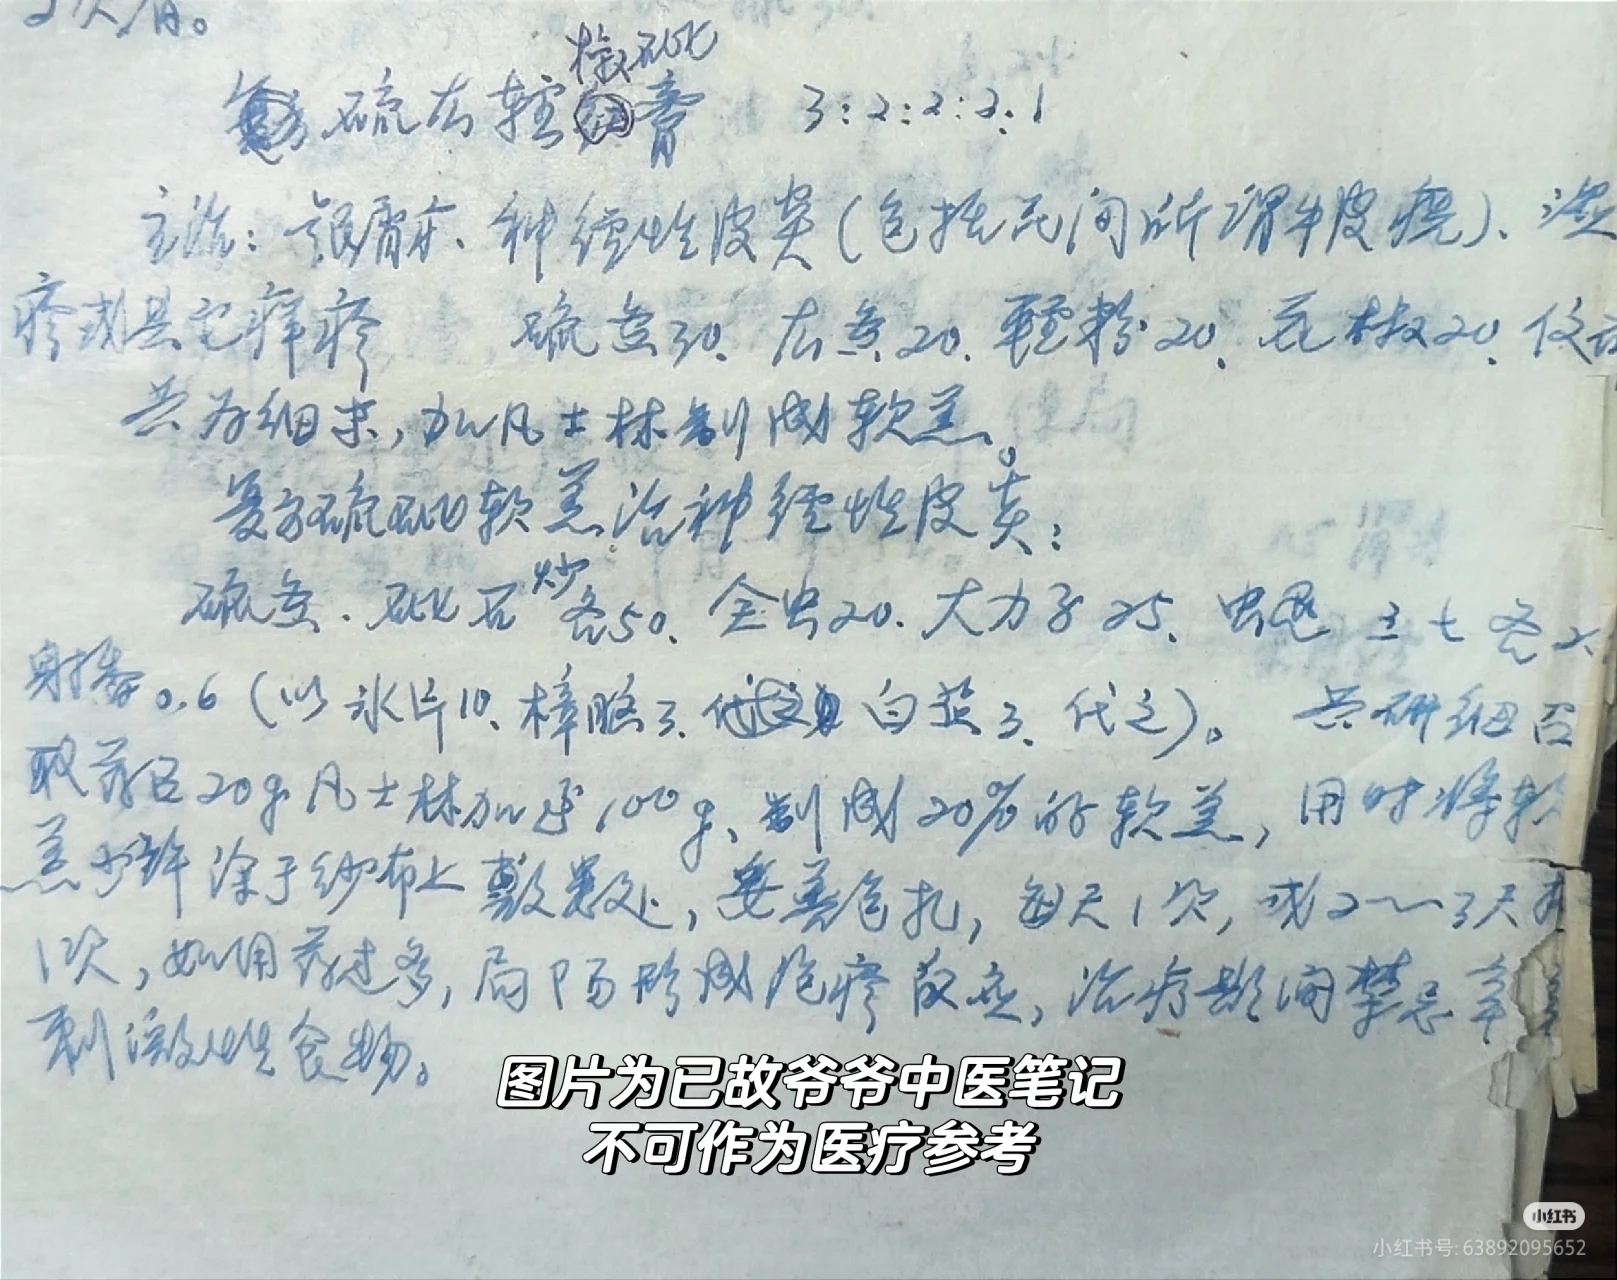 2次/日。
椒砒
硫大轻膏 3:2:2:2:1
主治：银屑疒、神经性皮炎(包括民间所谓牛皮癣)、湿
疹或其它痒疹 硫黄30、大黄20、轻粉20、花椒20、
共为细末，加凡士林制成软羔。
复方硫砒软羔治神经性皮炎：
硫黄、砒石炒各50、全虫20、大力子25、虫退 三七各2
射香0.6(以冰片10、樟脑3、白芷3、代之)。 共研细
取药20g凡士林加至100g、制成20%的软羔，用时将软
羔少许涂于纱布上敷患处，妥善包扎，每天1次，或2~3天
1次，如用药过多，局部形成疱疹反应，治疗期间禁忌辛
刺激性食物。
图片为已故爷爷中医笔记
不可作为医疗参考
小红书
小红书号: 63892095652